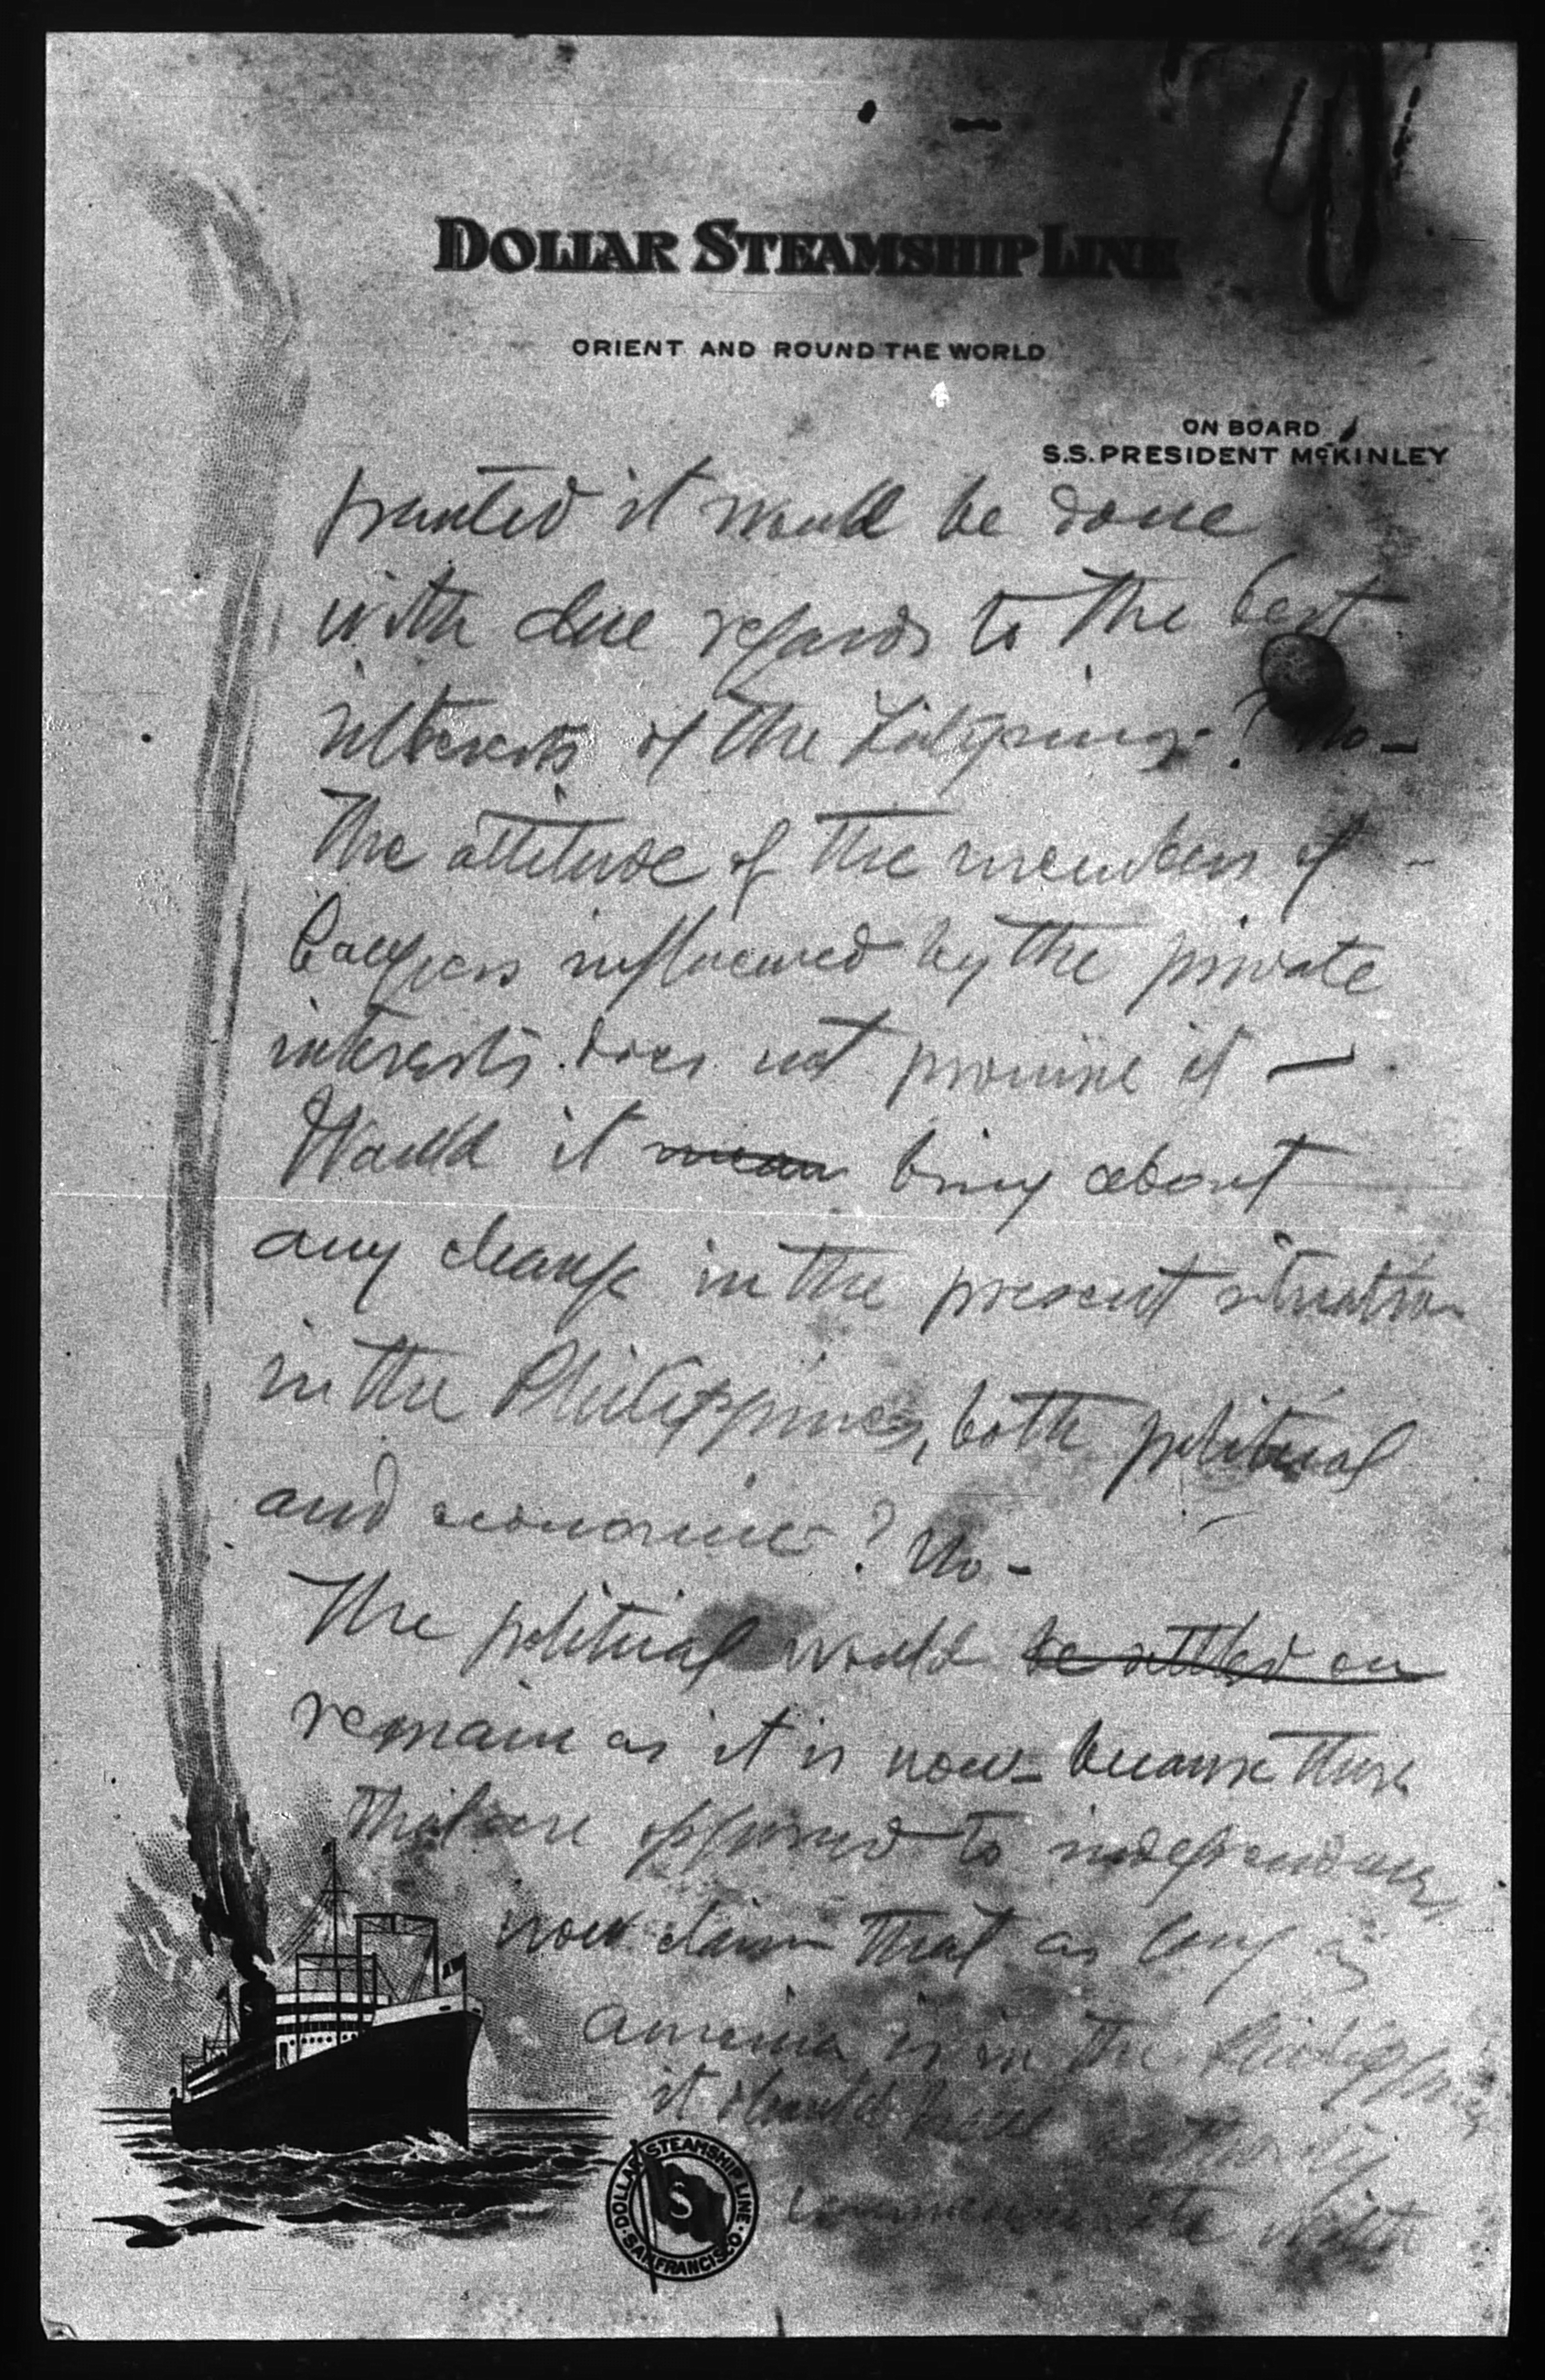 DOLLAR STEAMSHIP LINE
ORIENT AND ROUND THE WORLD
ON BOARD
S.S. PRESIDENT McKINLEY
granted it would be done
with due regards to the best
interests of the Filipinos? No-
The attitude of the members of
Congress influenced by the private
interests does not promise it —
Would it mean bring about
any change in the present situation
in the Philippines, both political
and economic? No -
The political would be settled on
remain as it is now - because those
that are opposed to independence
now claim that as long as
America is in the Philippines
it should have authority
commensurate with
DOLLAR STEAMSHIP LINE · SAN FRANCISCO
$